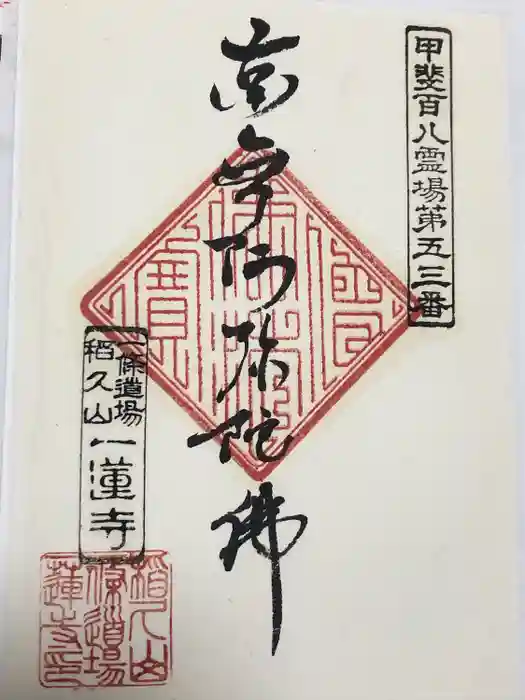 甲斐百八霊場第五三番
南無阿弥陀佛
佛法僧寶
一條道場
稻久山一蓮寺
稻久山
一條道場
一蓮寺印